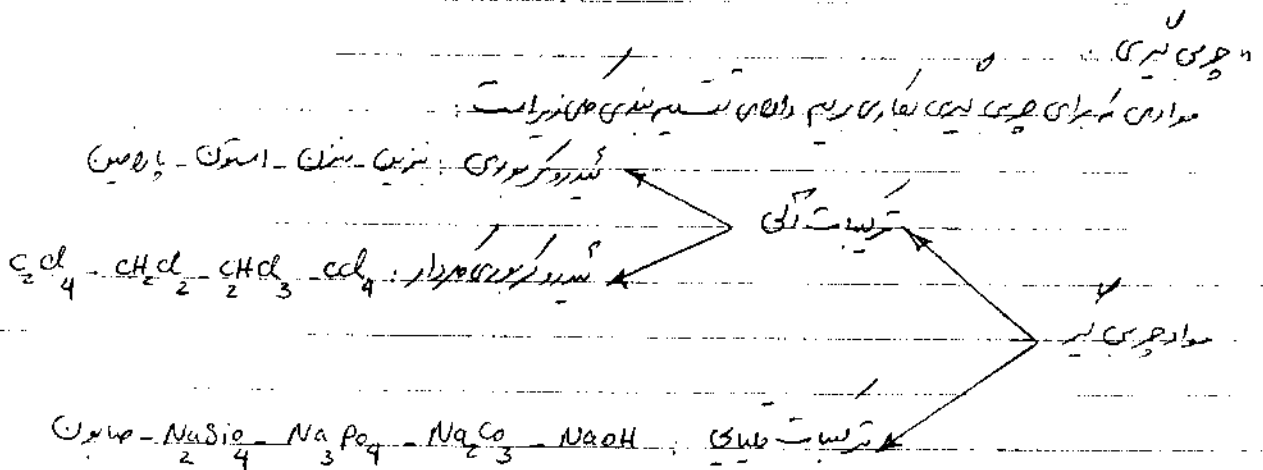 " چربی گیری :
موادی که برای چربی گیری بکار می بریم دارای تقسیم بندی های زیر است :
ئیدروکربوری : بنزین - بنزن - استون - پارافین
ترکیبات آلی
ئیدروکربوری کلردار : C2Cl4 - CH2Cl2 - C2HCl3 - CCl4
مواد چربی گیر
ترکیبات قلیایی : NaOH - Na2CO3 - Na3PO4 - Na2SiO4 - صابون